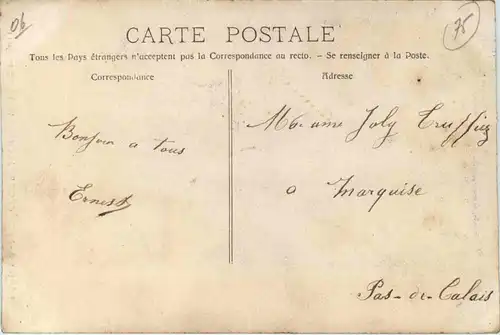 06
75
CARTE POSTALE
Tous les Pays étrangers n'acceptent pas la Correspondance au recto. - Se renseigner à la Poste.
Correspondance
Adresse
Bonjour a tous
Ernest
Madame Joly
a Marquise
Pas-de-Calais